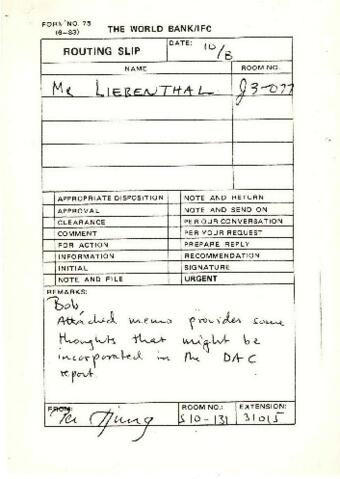 FORM NO. 75
(6-83)
THE WORLD BANK/IFC
ROUTING SLIP
DATE: 10/8
NAME
ROOM NO.
Mr LIEBENTHAL
J3-077
APPROPRIATE DISPOSITION NOTE AND RETURN
APPROVAL NOTE AND SEND ON
CLEARANCE PER OUR CONVERSATION
COMMENT PER YOUR REQUEST
FOR ACTION PREPARE REPLY
INFORMATION RECOMMENDATION
INITIAL SIGNATURE
NOTE AND FILE URGENT
REMARKS:
Bob
Attached memo provides some
thoughts that might be
incorporated in the DAC
report.
FROM:
ROOM NO.:
EXTENSION:
S10-131
31015